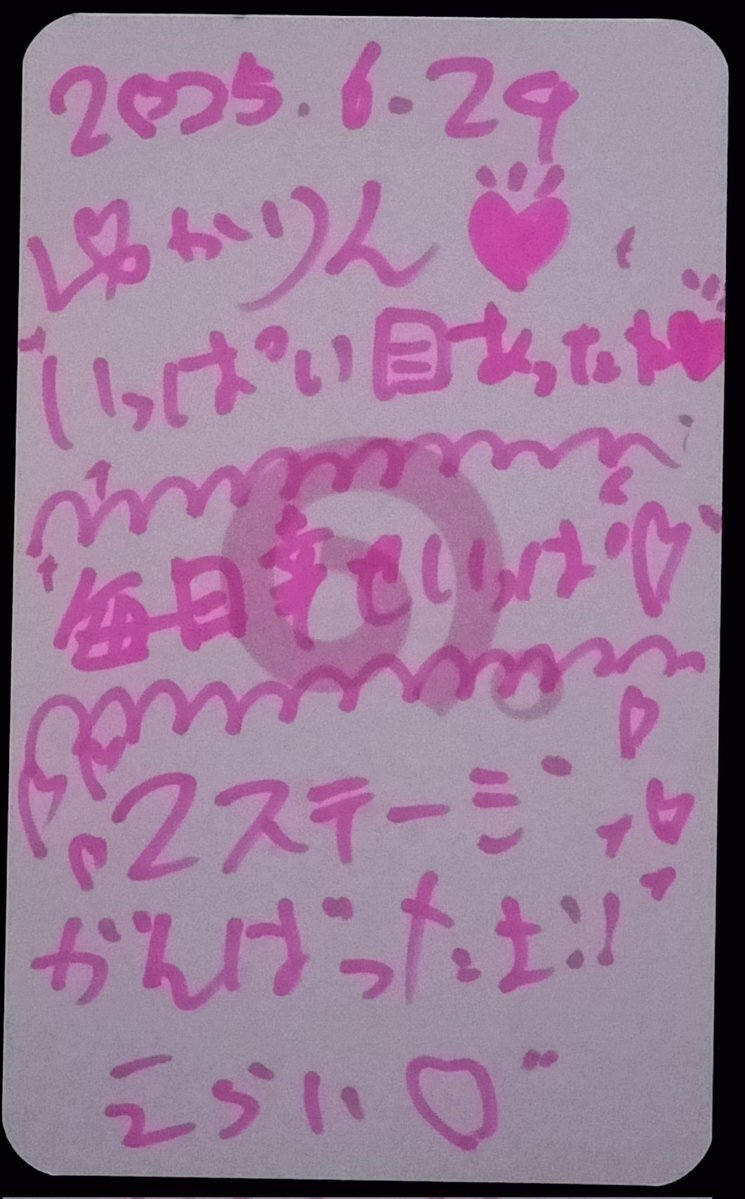 2025.6.29
ゆかりん♥
いっぱい目あったね♥
毎日幸せいっぱい♡
2ステージ
がんばったよ!
えらい♡